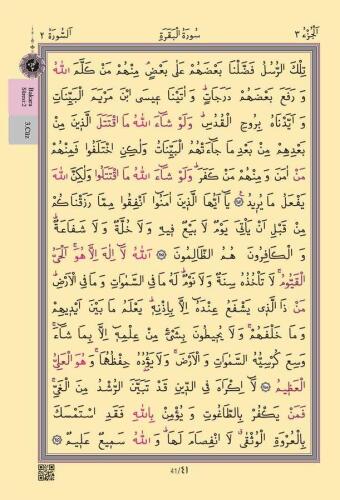 اَلْجُزْءُ ٣
سُورَةُ الْبَقَرَةِ
اَلسُّورَةُ ٢
Bakara
Sûresi: 2
3.Cüz
تِلْكَ الرُّسُلُ فَضَّلْنَا بَعْضَهُمْ عَلٰى بَعْضٍۢ مِنْهُمْ مَنْ كَلَّمَ اللّٰهُ
وَرَفَعَ بَعْضَهُمْ دَرَجَاتٍۜ وَاٰتَيْنَا عٖيسَى ابْنَ مَرْيَمَ الْبَيِّنَاتِ
وَاَيَّدْنَاهُ بِرُوحِ الْقُدُسِۜ وَلَوْ شَٓاءَ اللّٰهُ مَا اقْتَتَلَ الَّذٖينَ مِنْ
بَعْدِهِمْ مِنْ بَعْدِ مَا جَٓاءَتْهُمُ الْبَيِّنَاتُ وَلٰكِنِ اخْتَلَفُوا فَمِنْهُمْ
مَنْ اٰمَنَ وَمِنْهُمْ مَنْ كَفَرَۜ وَلَوْ شَٓاءَ اللّٰهُ مَا اقْتَتَلُوا وَلٰكِنَّ اللّٰهَ
يَفْعَلُ مَا يُرٖيدُ ﴿٢٥٣﴾ يَٓا اَيُّهَا الَّذٖينَ اٰمَنُٓوا اَنْفِقُوا مِمَّا رَزَقْنَاكُمْ
مِنْ قَبْلِ اَنْ يَأْتِيَ يَوْمٌ لَا بَيْعٌ فٖيهِ وَلَا خُلَّةٌ وَلَا شَفَاعَةٌۜ
وَالْكَافِرُونَ هُمُ الظَّالِمُونَ ﴿٢٥٤﴾ اَللّٰهُ لَٓا اِلٰهَ اِلَّا هُوَۚ اَلْحَيُّ
الْقَيُّومُۚ لَا تَأْخُذُهُ سِنَةٌ وَلَا نَوْمٌۜ لَهُ مَا فِي السَّمٰوَاتِ وَمَا فِي الْاَرْضِۜ
مَنْ ذَا الَّذٖي يَشْفَعُ عِنْدَهُٓ اِلَّا بِاِذْنِهٖۜ يَعْلَمُ مَا بَيْنَ اَيْدٖيهِمْ
وَمَا خَلْفَهُمْۚ وَلَا يُحٖيطُونَ بِشَيْءٍ مِنْ عِلْمِهٖٓ اِلَّا بِمَا شَٓاءَۚ
وَسِعَ كُرْسِيُّهُ السَّمٰوَاتِ وَالْاَرْضَۚ وَلَا يَؤُ۫دُهُ حِفْظُهُمَاۚ وَهُوَ الْعَلِيُّ
الْعَظٖيمُ ﴿٢٥٥﴾ لَٓا اِكْرَاهَ فِي الدّٖينِ قَدْ تَبَيَّنَ الرُّشْدُ مِنَ الْغَيِّۚ
فَمَنْ يَكْفُرْ بِالطَّاغُوتِ وَيُؤْمِنْ بِاللّٰهِ فَقَدِ اسْتَمْسَكَ
بِالْعُرْوَةِ الْوُثْقٰىۗ لَا انْفِصَامَ لَهَاۜ وَاللّٰهُ سَمٖيعٌ عَلٖيمٌ ﴿٢٥٦﴾
41/٤١